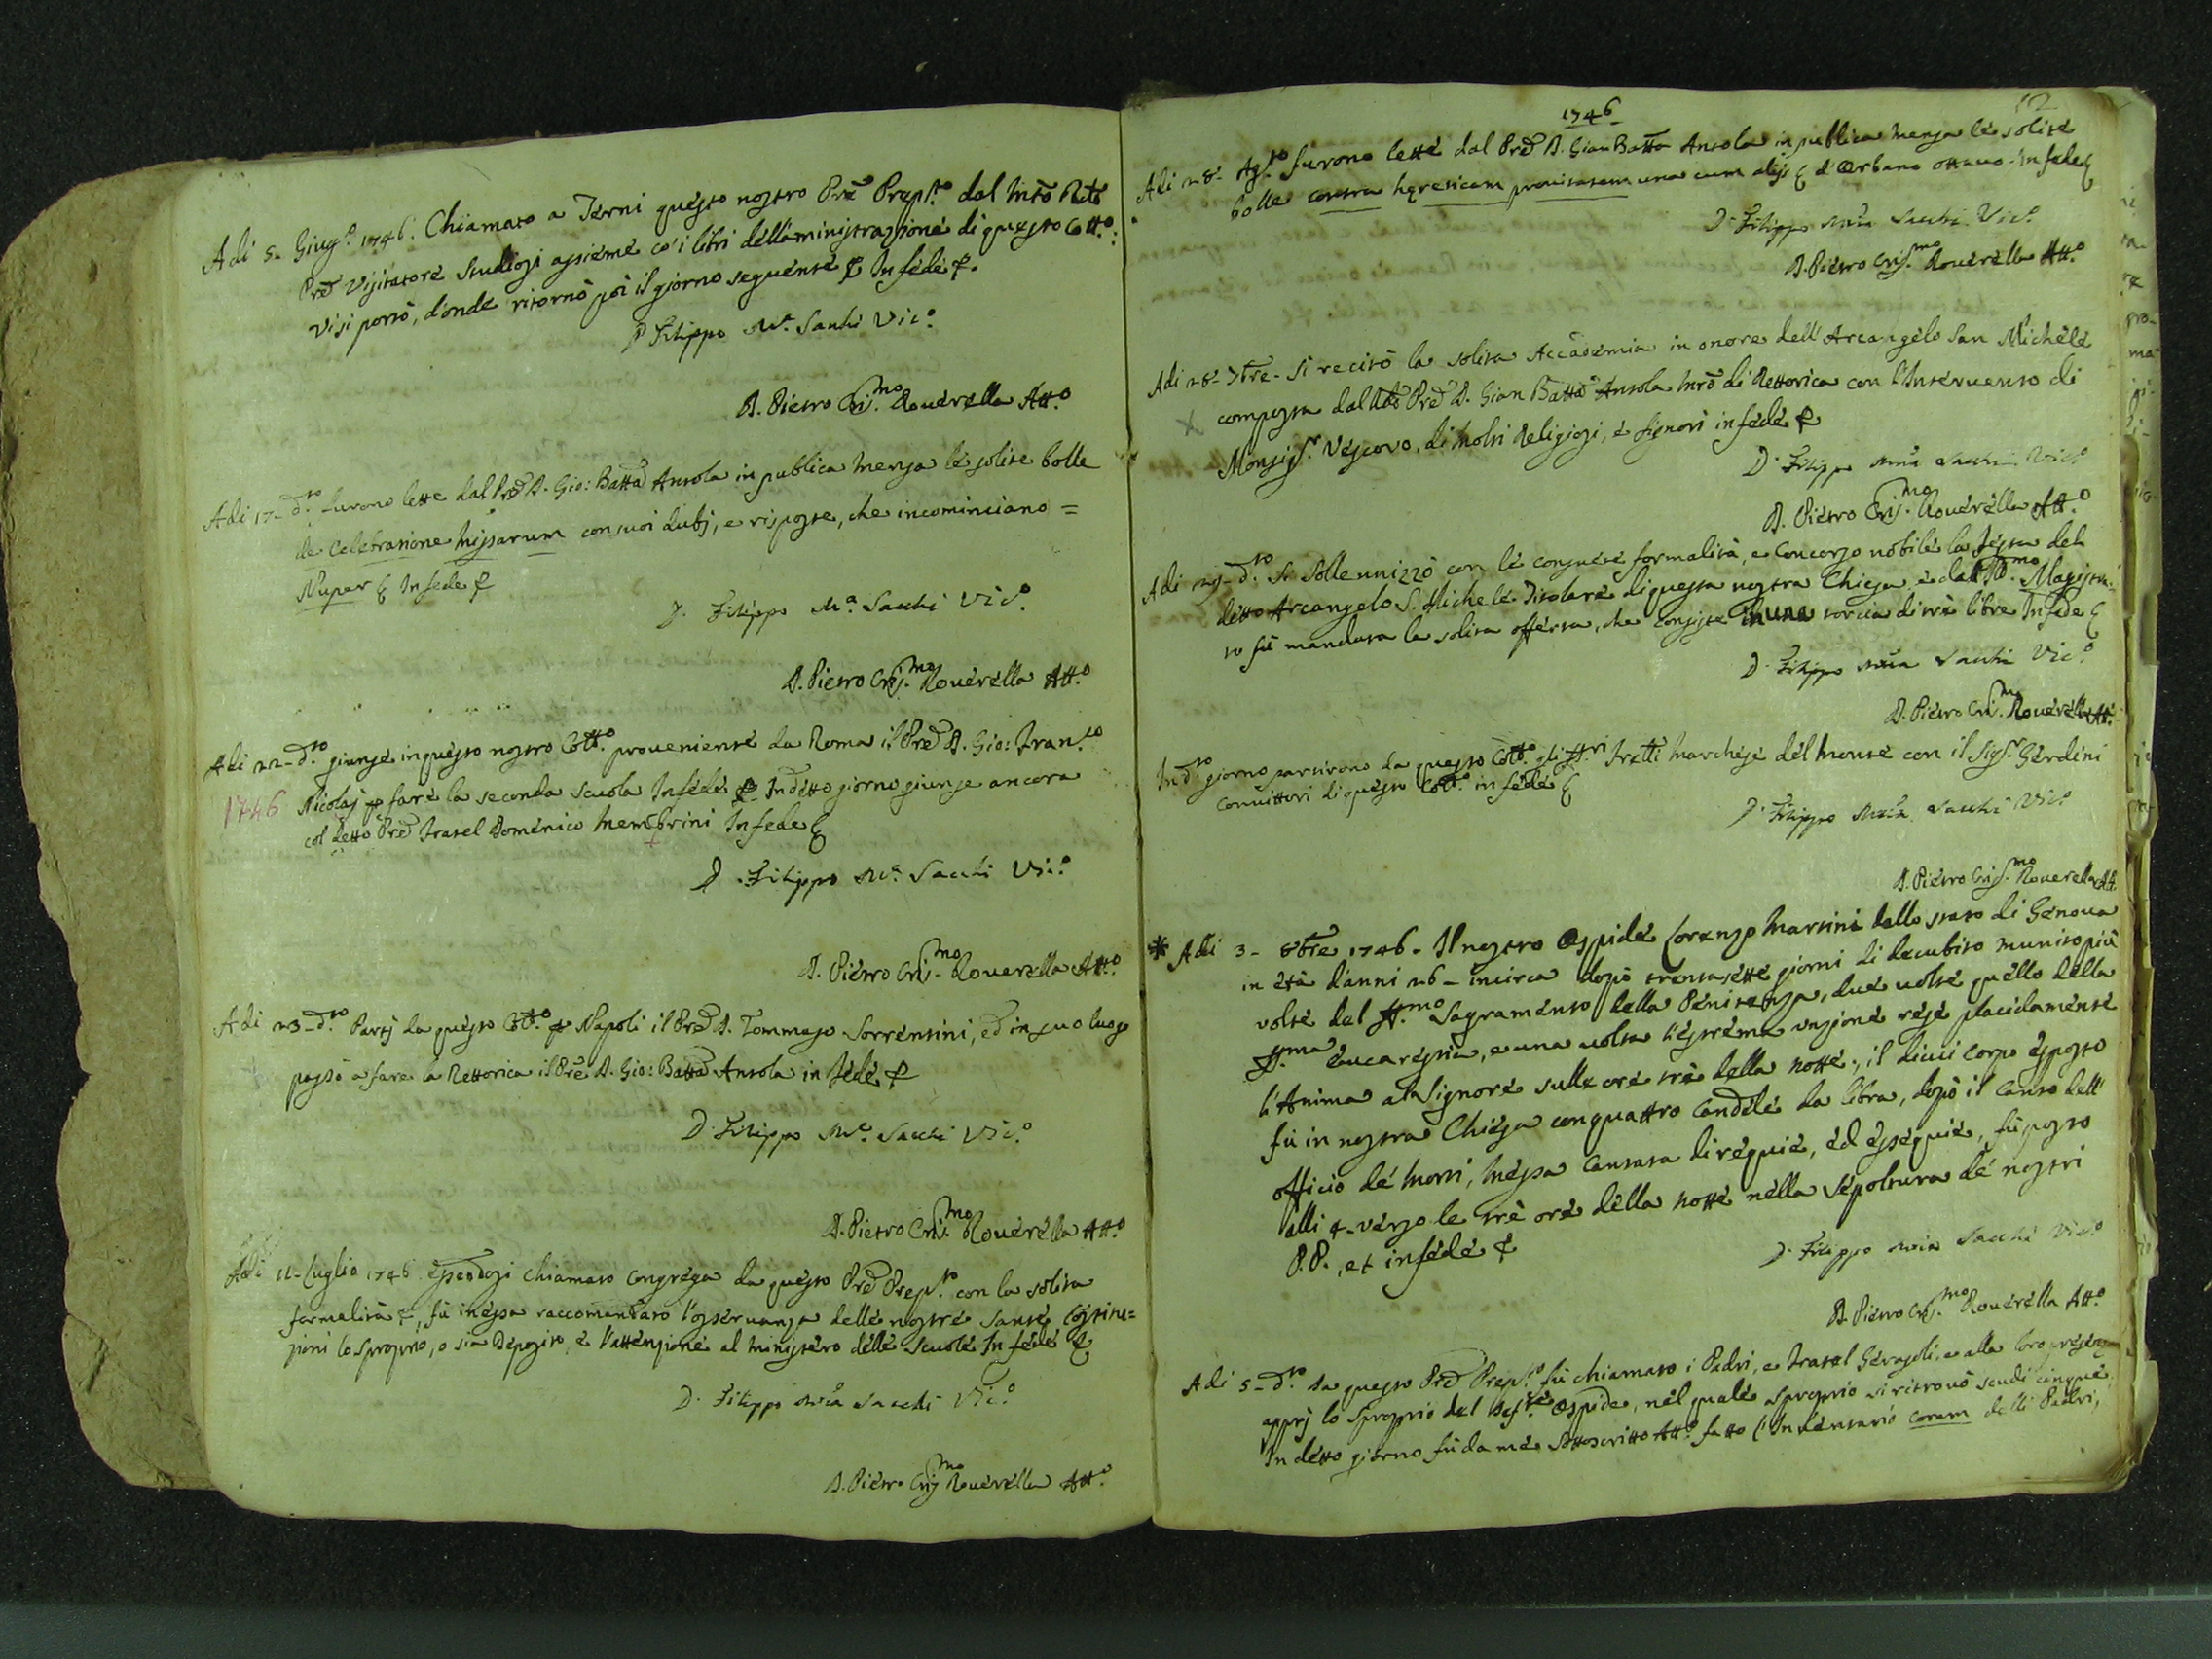 Adi 5- Giug.o 1746. Chiamato a Terni questo nostro Pré Prep.to dal
Prē Visitatore Studiosi assieme co' i libri dell'aministrazione di questo Coll.o:
vi si portò, d'onde ritornò poi il giorno seguente & In fede &.
D Filippo M.a Sacchi Vic.o
D. Pietro Cris.mo Rouerella Att.o
Adi 17- d.to furono lette dal Prē D. Gio: Batta Ansola in publica mensa le solite bolle
de Celebratione missarum con suoi dubj, e risposte, che incominciano =
Nuper & In fede &
D. Filippo M.a Sacchi Vic.o
D. Pietro Cris.mo Rouerella Att.o
Adi 22- d.to giunse in questo nostro Coll.o proveniente da Roma il Prē D. Gio: Fran.co
1746 Nicolaj p fare la seconda scuola In fede & In detto giorno giunse ancora
col detto Prē Fratel Domenico Membrini In fede &
D. Filippo M.a Sacchi Vic.o
D. Pietro Cris.mo Rouerella Att.o
Adi 23- d.to Partj da questo Coll.o p Napoli il Prē D. Tommaso Sorrentini, ed in suo luogo
passò a fare la Rettorica il Prē D. Gio: Batta Ansola in fede &
D. Filippo M.a Sacchi Vic.o
D. Pietro Cris.mo Rouerella Att.o
Adi 11- Luglio 1746. essendosi chiamato Congrega da questo Prē Prep.to con la solita
formalità &, fù in essa raccomandato l'osservanza delle nostre sante Costitu=
zioni lo Sproprio, o sia Deposito, e l'attenzione al ministero delle Scuole In fede &
D. Filippo Mia Sacchi Vic.o
D. Pietro Cris.mo Rouerella Att.o
1746
12
Adi 28- Ag.to furono lette dal Prē D. Gian Batta Ansola in publica mensa le solite
bolle contra hęreticam prauitatem una cum alijs & d'Urbano ottauo- In fede &
D. Filippo Mia Sacchi Vic.o
D. Pietro Cris.mo Rouerella Att.o
Adi 28- 7bre- Si recitò la solita Accademia in onore dell'Arcangelo San Michele
composta dal Prē D. Gian Batta Ansola Mrō di Rettorica con l'Interuento di
Monsig.r Vescovo, di molti Religiosi, e signori in fede &
D. Filippo Mia Sacchi Vic.o
D. Pietro Cris.mo Rouerella Att.o
Adi 29- d.to Si sollennizzò con le consuete formalità, e Concorso nobile la festa del
detto Arcangelo S. Michele Titolare di questa nostra Chiesa e dall' Ill.mo Magistra-
to fù mandata la solita offerta, che consiste in una torcia di trè libre In fede &
D. Filippo Mia Sacchi Vic.o
D. Pietro Cris.mo Rouerella Att.o
In d.to giorno partirono da questo Coll.o gli SS.ri Fratelli Marchese del Monte con il Sig.r Gerdini
Conuittori di questo Coll.o in fede &
D. Filippo Mia Sacchi Vic.o
D. Pietro Cris.mo Rouerella Att.
* Adi 3- 8bre 1746- Il nostro Ospide Lorenzo Martini dello stato di Genoua
in età d'anni 26- incirca dopò trentasette giorni di decubito munito più
volte del SS.mo Sagramento della Penitenza, due uolte quello della
SS.ma Eucarestia, e una uolta l'estrema unzione rese placidamente
l'Anima al Signore sulle ore trè della notte; il di cui corpo esposto
fù in nostra Chiesa con quattro candele da libra, dopò il canto dell'
officio de' morti, messa cantata di requie, ed essequie, fù posto
alli 4- verso le trè ore della notte nella sepoltura de' nostri
P.P., et in fede &
D. Filippo Mia Sacchi Vic.o
D. Pietro Cris.mo Rouerella Att.o
Adi 5- d.to da questo Prē Prep.to fù chiamato i Padri, e Fratel Geruasoli, e alla loro presenza
apprj lo Sproprio del Ospide, nel quale sproprio si ritrouò scudi cinque
In detto giorno fù da me sottoscritto Att.o fatto l'Inuentario coram delli Padri,